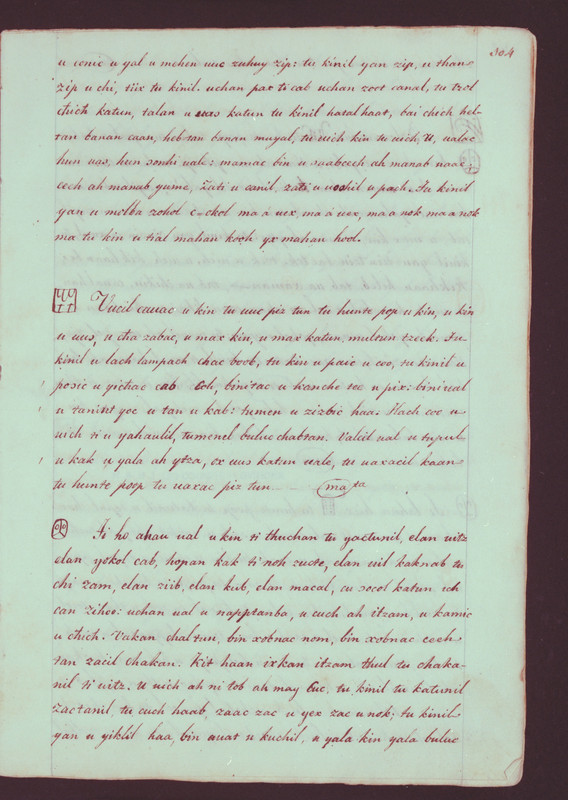 304
u conic u yal u mehen uuc zuhuy zip: tu kinil yan zip, u than
zip u chi, tiix tu kinil. uchan pax ti cab uchan zoot canal, tu tzol
chich katun, talan u uas katun tu kinil hatal haat, bai chich heb-
tan banan caan, heb tan banan muyal, tu uich kin tu uich, U, ualac
hun uas, hun sonhi uale: mamac bin u saabcech ah manab naac-
cech ah manab yume, zati u canil, zati u uoohil u pach. Tu kinil
yan u molba zohol c-okol ma á uex, ma á uex, ma a nok ma a nok
ma tu kin u tial mahan koch yx mahan hool.
Vucil cauac u kin tu uuc piz tun tu hunte pop u kin, u kin
u uus, u cha zabac, u max kin, u max katun, multun tzeck. Tu-
kinil u lach lampach chac boob, tu kin u paic u coo, tu kinil u
posic u yichac cab coh, binitac u kanche tec u pix: bini ual
u tanint yoc u tan u kab: tumen u zizbic haa: Hach coo u
uich ti u yahaulil, tumenel buluc chabtan. Valcil ual u tupul
u kak u yala ah ytza, ox uus katun uale, tu uaxacil kaan
tu hunte poop tu uaxac piz tun — mata
Ti ho ahau ual u kin ti thuchan tu yactunil, elan uitz
elan yokol cab, hopan kak ti noh zucte, elan uil kaknab tu
chi zam, elan ziib, elan kub, elan macal, cu secol katun ich
can zihoo: uchan ual u napptanba, u cuch ah itzam, u kamic
u chich. Vakan chaltun, bin xobnac nom, bin xobnac ceeh
tan zacil chakan. Kit haan ixkan itzam thul tu chaka-
nil ti uitz. U uich ah ni tob ah may Cuc, tu kinil tu katunil
zactanil, tu cuch haab, zaac zac u yex zac u nok: tu kinil
yan u yiklil haa, bin auat u kuchil, u yala kin yala buluc